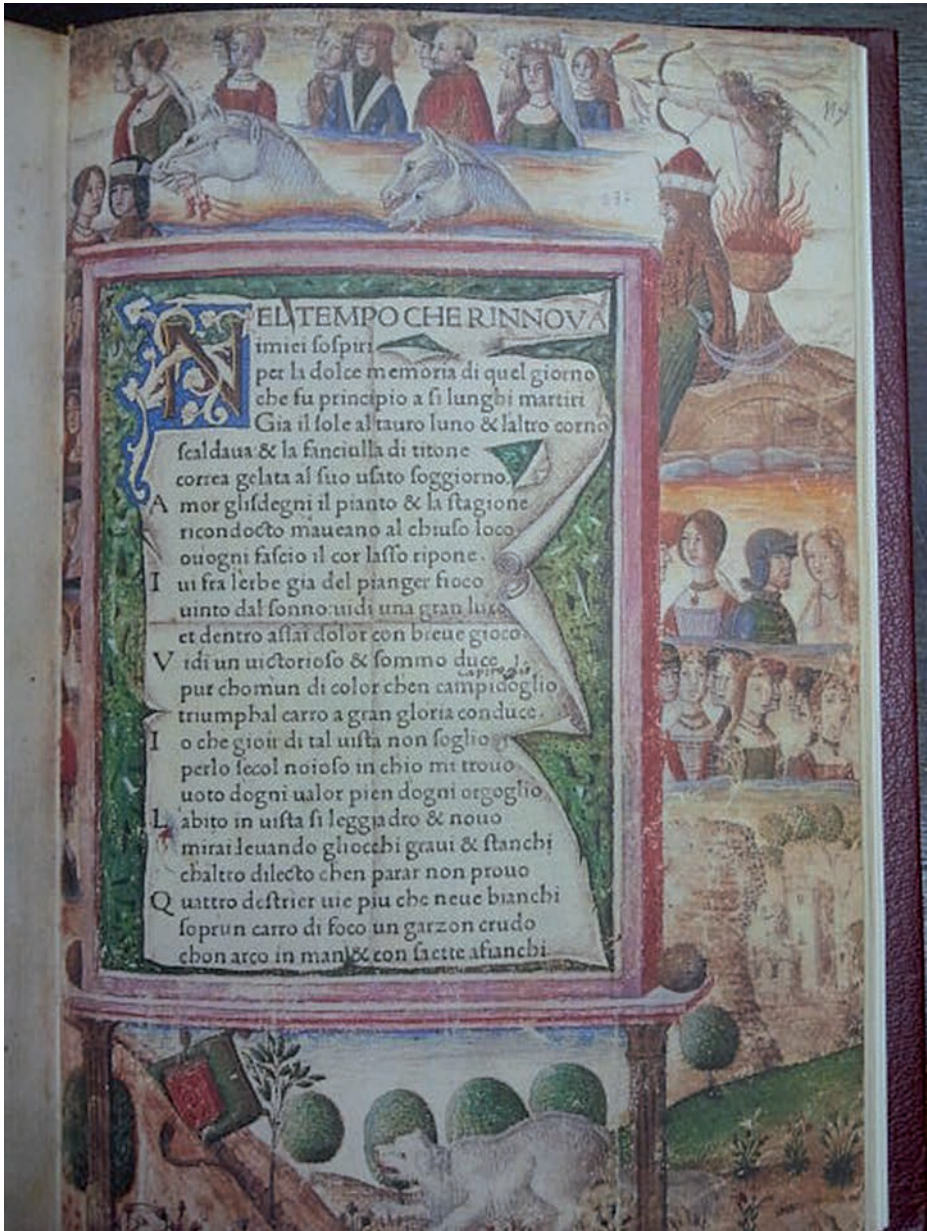 NEL TEMPO CHE RINNOVA
imiei sospiri
per la dolce memoria di quel giorno
che fu principio a si lunghi martiri
Gia il sole al tauro luno & laltro corno
scaldaua & la fanciulla di titone
correa gelata al suo usato soggiorno.
Amor glisdegni il pianto & la stagione
ricondocto maueano al chiuso loco
ouogni fascio il cor lasso ripone.
Iui fra lerbe gia del pianger fioco
uinto dal sonno:uidi una gran luce
et dentro assai dolor con breue gioco.
Vidi un uictorioso & sommo duce
pur chomun di color chen campidoglio
triumphal carro a gran gloria conduce.
Io che gioir di tal uista non soglio
perlo secol noioso in chio mi trouo
uoto dogni ualor pien dogni orgoglio
Labito in uista si leggiadro & nouo
mirai leuando gliocchi graui & stanchi
chaltro dilecto chen parar non prouo
Quattro destrier uie piu che neue bianchi
soprun carro di foco un garzon crudo
chon arco in man & con saette afianchi